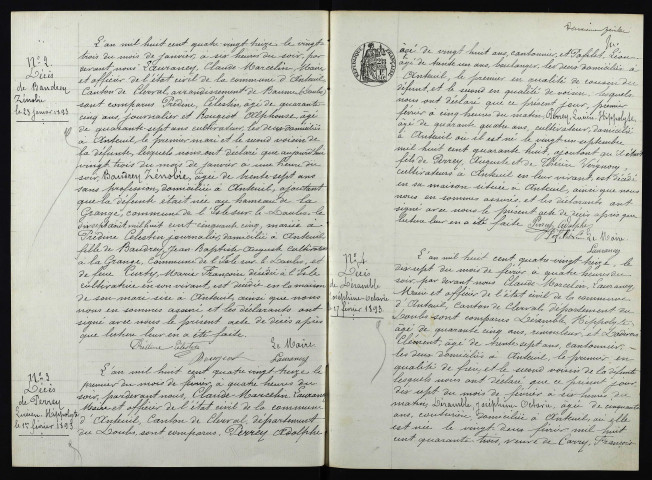 N° 2
Décès
de Baudrey
Zénobie
le 23 janvier 1893
L'an mil huit cent quatre vingt treize le vingt
trois du mois de janvier, à six heures du soir, par
devant nous Laurency, Claude Marcelin Maire
et officier de l'état civil de la commune d'Anteuil,
Canton de Clerval, arrondissement de Baume, Doubs,
sont comparus Prédine, Célestin, âgé de quarante
cinq ans, journalier et Bougeot Alphonse, âgé
de quarante-sept ans cultivateur, les deux domiciliés
à Anteuil, le premier mari et le second voisin de
la défunte, lesquels nous ont déclaré que aujourd'hui
vingt trois du mois de janvier à une heure du
soir, Baudrey Zénobie, âgée de trente sept ans
sans profession, domiciliée à Anteuil, ajoutant
que la défunte était née au hameau de la
Grange, commune de l'Isle sur le Doubs, le
mil huit cent cinquante cinq, mariée à
Prédine Célestin journalier, domicilié à Anteuil
fille de Baudrey, Jean Baptiste Auguste cultivateur
à la Grange, Commune de l'Isle sur le Doubs, et
de feue Marie Françoise décédée à l'Isle
cultivatrice en son vivant, est décédée en la maison
de son mari sise à Anteuil, ainsi que nous
nous en sommes assuré et les déclarants ont
signé avec nous le présent acte de décès après
que lecture leur en a été faite.
Prédine Célestin
Bougeot
Le Maire
Laurency
N° 3
Décès
de Perrey
Hippolyte
le 1er février 1893
L'an mil huit cent quatre vingt treize le
premier du mois de février, à quatre heures du
soir, par devant nous, Claude-Marcelin, Laurency
Maire et officier de l'état civil de la commune
d'Anteuil, Canton de Clerval, département
du Doubs, sont comparus, Perrey Adolphe
âgé de vingt huit ans, cantonnier, et
âgé de trente ans, boulanger, les deux domiciliés
à Anteuil, le premier en qualité de cousin du
défunt, et le second en qualité de voisin, lesquels
nous ont déclaré que ce présent jour, premier
février à cinq heures du matin, Perrey, Hippolyte,
âgé de quarante quatre ans, cultivateur, domicilié
à Anteuil où il est né le vingt un septembre
mil huit cent quarante huit, ajoutant qu'il était
fils de Perrey, Auguste et de
cultivateurs à Anteuil en leur vivant, est décédé
en sa maison située à Anteuil, ainsi que nous
nous en sommes assurés, et les déclarants ont
signé avec nous le présent acte de décès après que
lecture leur en a été faite
Perrey Adolphe
Le Maire
Laurency
N° 4
Décès
de Déramble
Joséphine-Octavie
17 février 1893
L'an mil huit cent quatre vingt treize, le
dix-sept du mois de février à quatre heures du
soir, par devant nous Claude Marcelin, Laurency
Maire et officier de l'état civil de la commune
d'Anteuil, Canton de Clerval, département du
Doubs, sont comparus, Déramble, Hippolyte,
âgé de quarante cinq ans, et
Clément, âgé de trente sept ans, cantonnier,
les deux domiciliés à Anteuil, le premier en
qualité de frère, et le second voisin de la défunte
lesquels nous ont déclaré que ce présent jour,
dix sept du mois de février à six heures du
matin, Déramble, Joséphine Octavie, âgée de cinquante
ans, couturière, domiciliée à Anteuil où elle
est née le vingt deux février mil huit
cent quarante trois, veuve de Carry, François